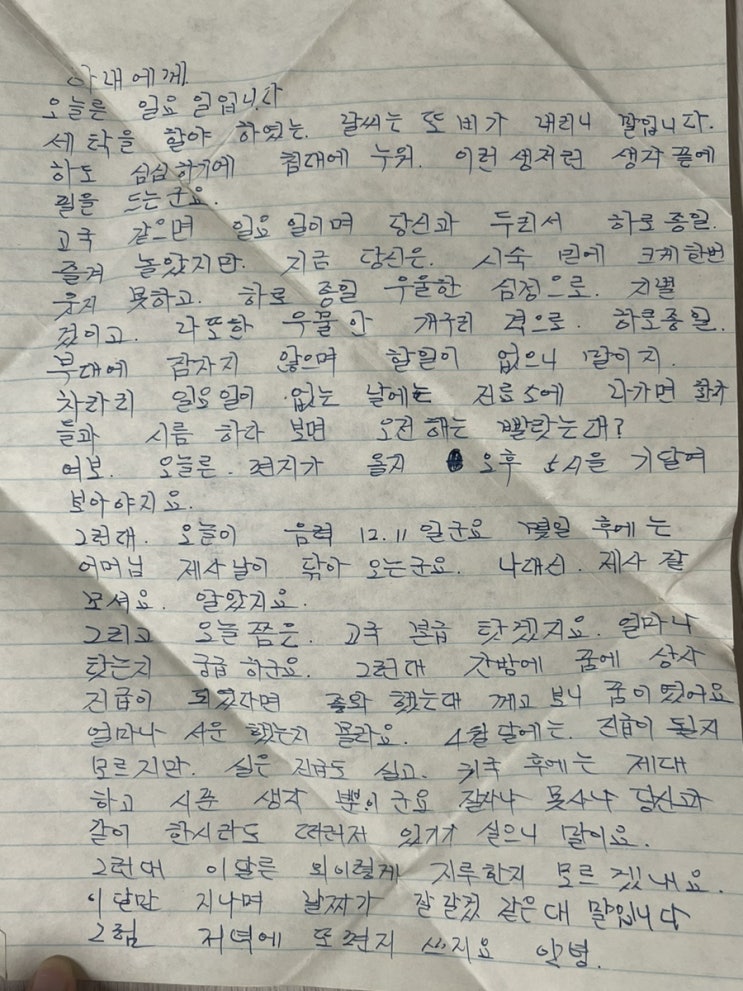 아내에게
오늘른 일요일입니다
세탁을 할야 하였는. 날씨는 또 비가 내리니 말입니다.
하도 심심하기에 침대에 누워. 이런생저런 생각 끝에
필을 드는군요.
고국 같으면 일요일이며 당신과 두리서 하로종일.
즐겨 놀았지만. 지금 당신은. 시숙 밑에 크게한번
웃지 못하고. 하로 종일 우울한 심정으로. 지낼
것이고. 나또한 우물안 개구리 격으로. 하로종일.
부대에 잠자지 않으며 할일이 없으니 말이지.
차라리 일요일이 없는 날에는 진료소에 나가면 환자
들과 시름 하다 보면 오전해는 빨랏는대?
여보. 오늘른. 편지가 올지 오후 5시을 기달여
보아야지요.
그런대. 오늘이 음력 12.11일군요 몇일 후에는
어머님 제사날이 닦아 오는군요. 나대신. 제사 잘
모셔요. 알았지요.
그리고 오늘쯤은. 고국 본급 탓겠지요. 얼마나
탓는지 궁급하군요. 그런대 간밤에 꿈에 상사
진급이 되였다면 좋와 했는대 깨고 보니 꿈이였어요
얼마나 서운 했는지 몰라요. 4월달에는. 진급이 될지
모르지만. 실은 진급도 실고. 귀국 후에는 제대
하고 시푼 생각 뿐이군요 잘사나 못사나 당신과
같이 한시라도 떠러저 있기가 실으니 말이요.
그런대 이달른 외이렇게 지루한지 모르겠내요.
이달만 지나며 날짜가 잘갈것 같은대 말입니다
그럼 저녁에 또편지 쓰지요 안녕.